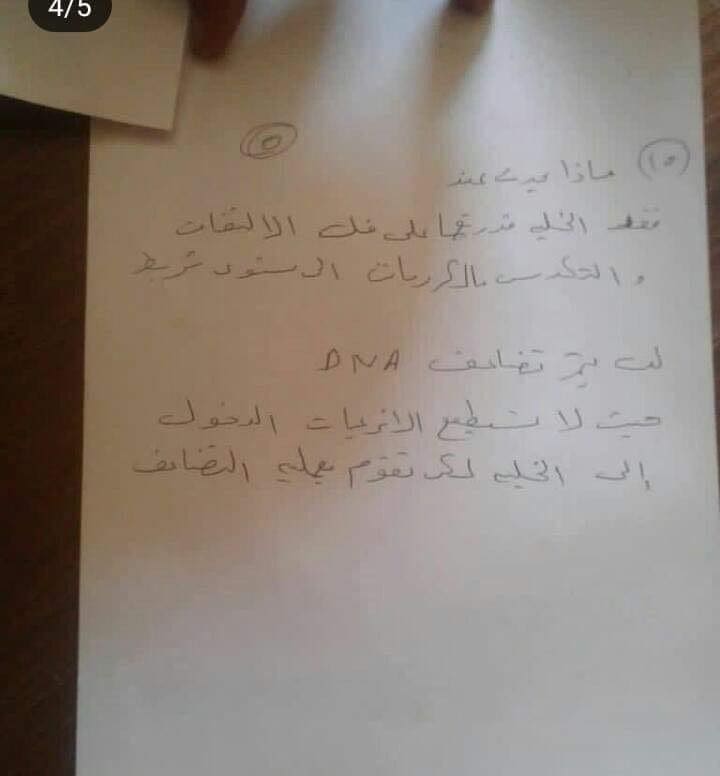 4/5
٥
١٥ ماذا يحدث عند
فقد الخلية قدرتها على فك الالتفات
والتكدس بالكروماتين
لن يتم تضاعف DNA
حيث لا تستطيع الانزيمات الدخول
إلى الخلية لكى تقوم بعملية التضاعف